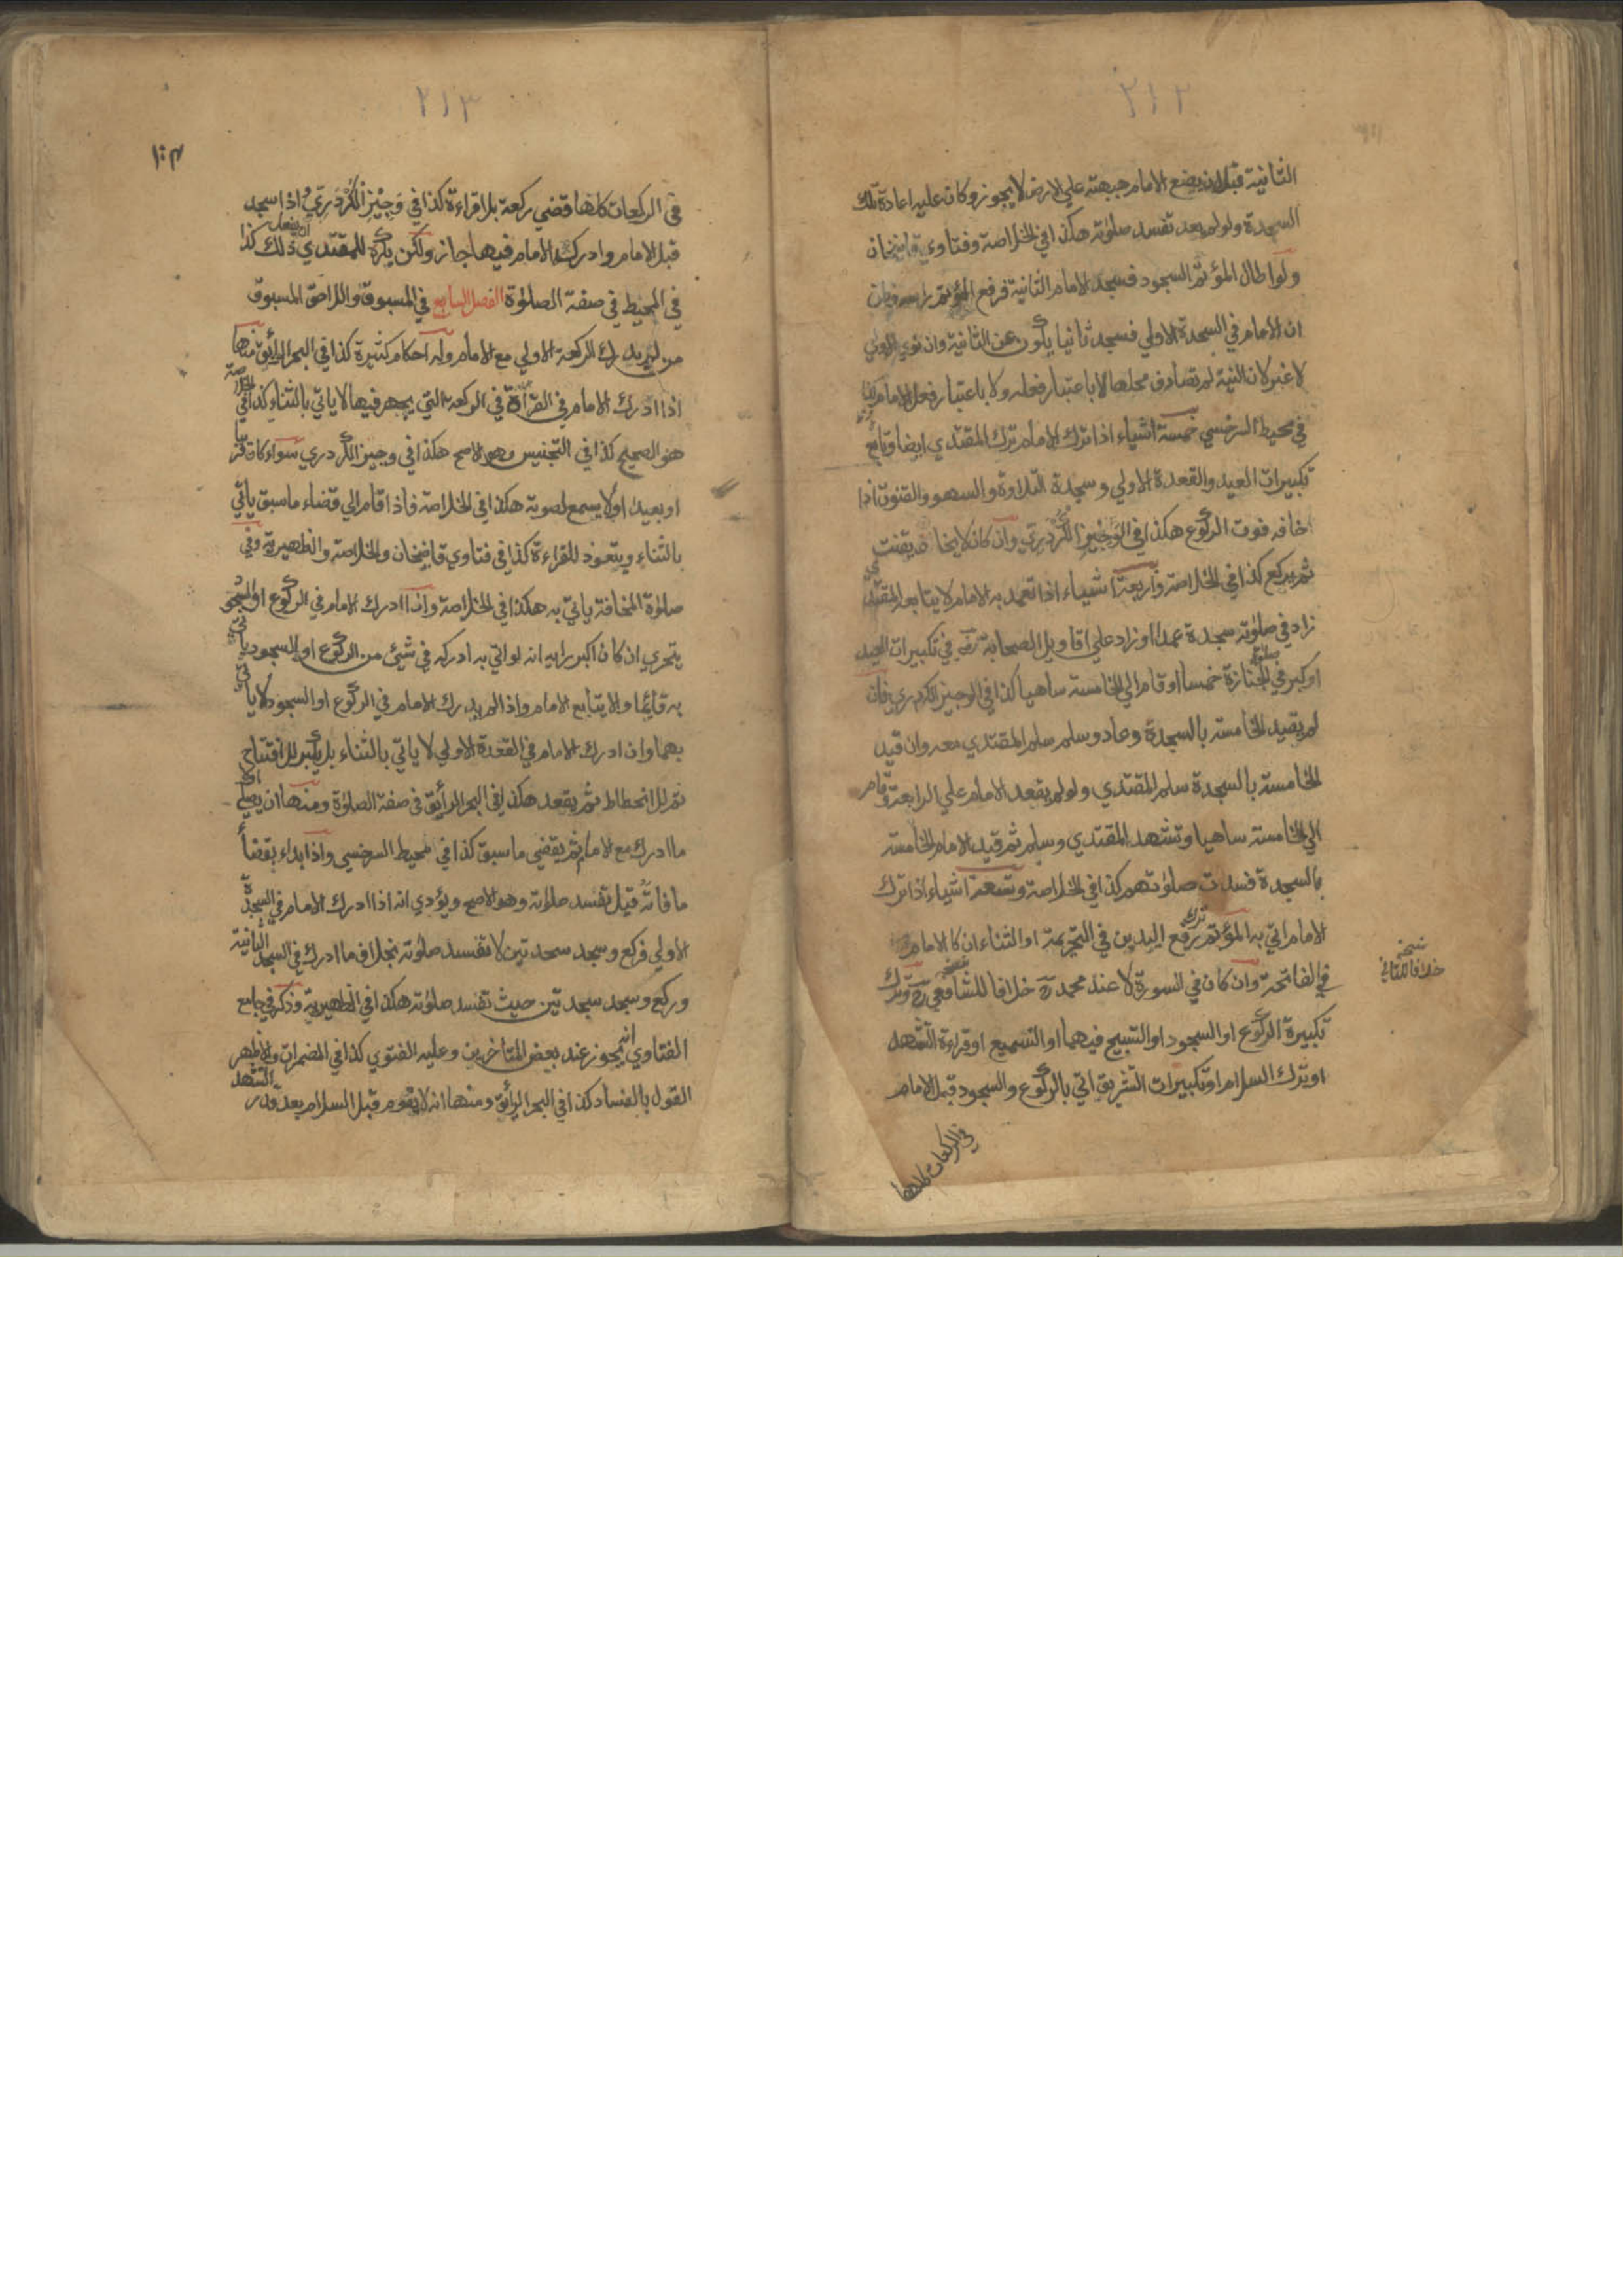 ٢١٢
الثانية قبل ان يضع الامام جبهته علي الارض لا يجوز وكان عليه اعادة تلك
السجدة ولو لم يعد تفسد صلوته هكذا في الخلاصة وفتاوي قاضيخان
ولو اطال المؤتم السجود فسجد الامام الثانية فرفع المؤتم راسه وظن
ان الامام في السجدة الاولي فسجد ثانيا يكون عن الثانية وان نوي الاولي
لا غير لان النية لم تصادف محلها لا باعتبار فعله ولا باعتبار فعل الامام كذا
في محيط السرخسي خمسة اشياء اذا ترك الامام ترك المقتدي ايضا وتابع
تكبيرات العيد والقعدة الاولي وسجدة التلاوة والسهو والقنوت اذا
خاف فوت الركوع هكذا في الوجيز الكردري وان كان لا يخاف يقنت
ثم يركع كذا في الخلاصة واربعة اشياء اذا تعمد به الامام لا يتابعه المقتدي
زاد في صلوته سجدة عمدا او زاد علي اقاويل الصحابة رض في تكبيرات العيد
او كبر في صلوة الجنازة خمسا او قام الي الخامسة ساهيا كذا في الوجيز الكردري فان
لم يقيد الخامسة بالسجدة وعاد وسلم سلم المقتدي معه وان قيد
الخامسة بالسجدة سلم المقتدي ولو لم يقعد الامام علي الرابعة وقام
الي الخامسة ساهيا وتشهد المقتدي وسلم ثم قيد الامام الخامسة
بالسجدة فسدت صلوتهم كذا في الخلاصة وتسعة اشياء اذا ترك
الامام اتي به المؤتم ترك رفع اليدين في التحريمة او الثناء ان كا الامام
في الفاتحة وان كان في السورة لا عند محمد رح خلافا للشافعي رح وترك
نسخه
تكبيرة الركوع او السجود او التسبيح فيهما او التسميع او قراءة التشهد
او ترك السلام او تكبيرات التشريق اتي بالركوع والسجود قبل الامام
في الركعات كلها
٢١٣
في الركعات كلها قضي ركعة بلا قراءة كذا في وجيز الكردري واذا سجد
قبل الامام وادركه الامام فيها جاز ولكن يكره للمقتدي ان يفعل ذلك كذا
في المحيط في صفة الصلوة الفصل السابع في المسبوق واللاحق المسبوق
من لم يدرك الركعة الاولي مع الامام وله احكام كثيرة كذا في البحر الرائق منها
اذا ادرك الامام في القرأة في الركعة التي يجهر فيها لا ياتي بالثناء كذا في الخلاصة
هو الصحيح كذا في التجنيس وهو الاصح هكذا في وجيز الكردري سواء كان قريبا
او بعيدا او لا يسمع لصوته هكذا في الخلاصة فاذا قام الي قضاء ما سبق ياتي
بالثناء ويتعوذ للقراءة كذا في فتاوي قاضيخان والخلاصة والظهيرية وفي
صلوة المخافتة ياتي به هكذا في الخلاصة واذا ادرك الامام في الركوع او السجود
يتحري ان كان اكبر رايه انه لو اتي به ادركه في شيئ من الركوع او السجود ياتي
به قائما والا يتابع الامام واذا لم يدرك الامام في الركوع او السجود لا ياتي
بهما وان ادرك الامام في القعدة الاولي لا ياتي بالثناء بل يكبر للافتتاح
ثم للانحطاط ثم يقعد هكذا في البحر الرائق في صفة الصلوة ومنها ان يصلي اولا
ما ادرك مع الامام ثم يقضي ما سبق كذا في محيط السرخسي واذا بداء بقضأ
ما فاته قيل تفسد صلوته وهو الاصح ويؤدي انه اذا ادرك الامام في السجدة
الاولي فركع وسجد سجدتين لا تفسد صلوته بخلاف ما ادرك في السجدة الثانية
وركع وسجد سجدتين حيث تفسد صلوته هكذا في الظهيرية وذكر في جامع
الفتاوي انه يجوز عند بعض المتأخرين وعليه الفتوي كذا في المضمرات والاظهر
القول بالفساد كذا في البحر الرائق ومنها انه لا يقوم قبل السلام بعد قدر التشهد